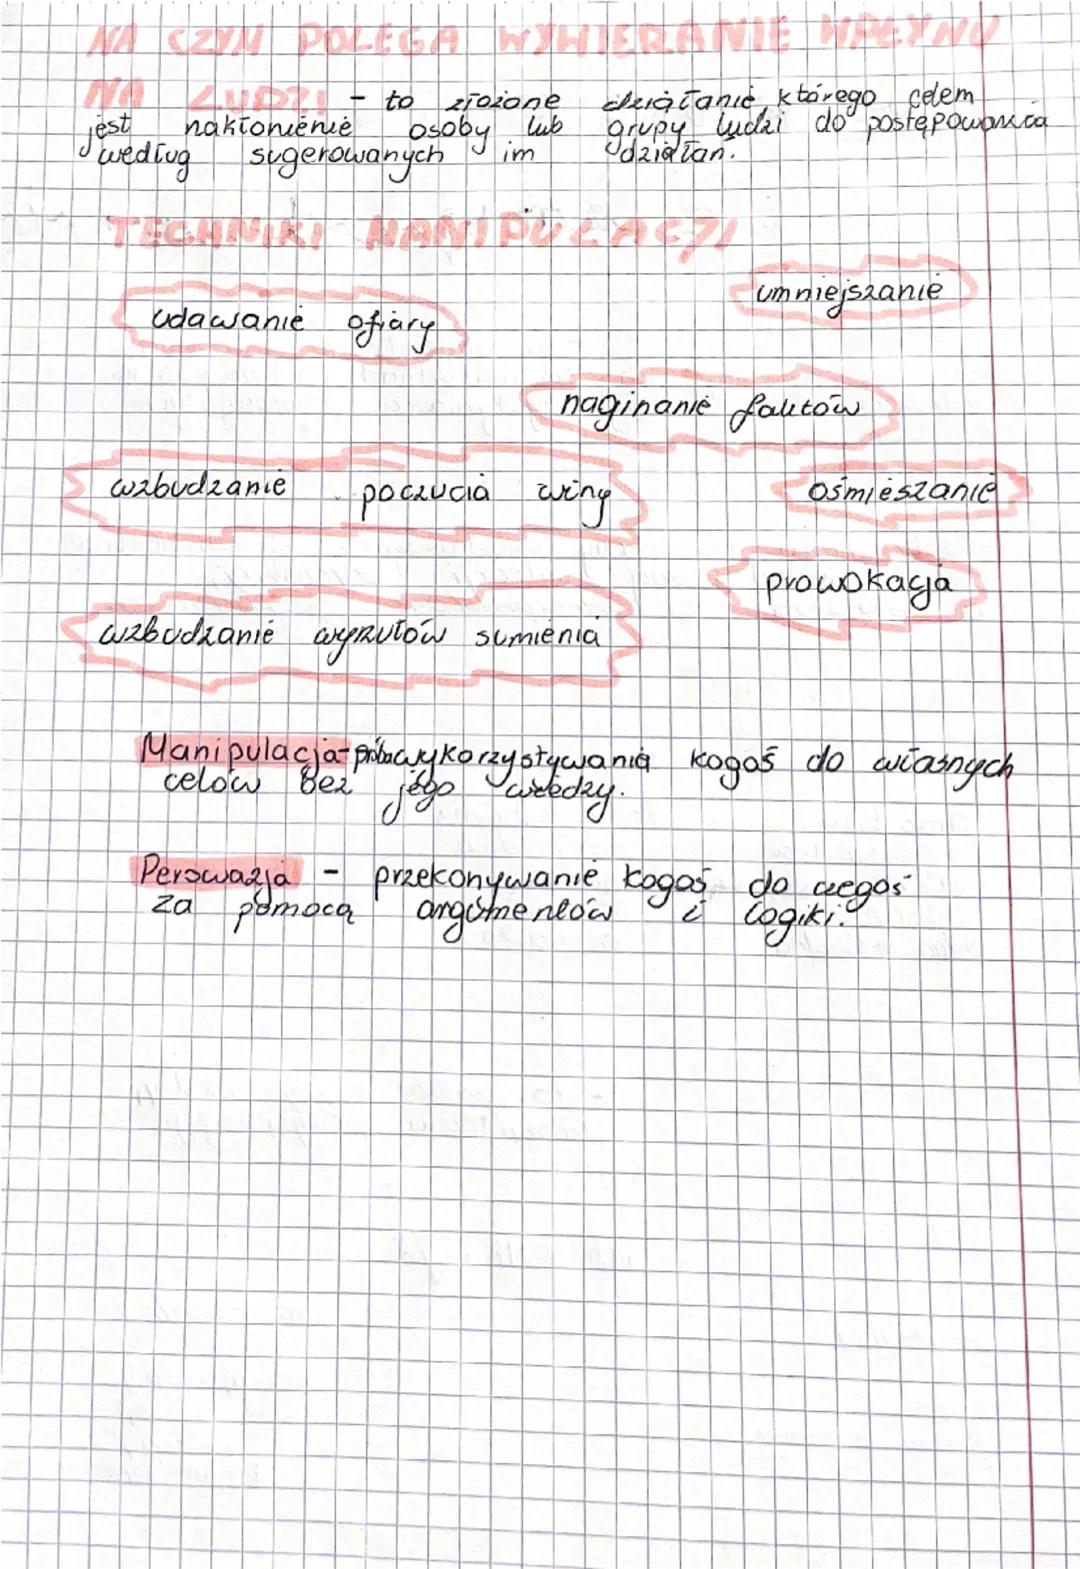 NA CZYM POLEGA WYWIERANIE WPŁYWU
NA LUDZI - to złożone działanie, którego celem
jest nakłonienie osoby lub grupy ludzi do postępowania
według sugerowanych im działań.
TECHNIKI MANIPULACJI
umniejszanie
udawanie ofiary
naginanie faktów
wzbudzanie poczucia winy
ośmieszanie
prowokacja
wzbudzanie wyrzutów sumienia
Manipulacja - próba wykorzystywania kogoś do własnych
celów bez jego wiedzy.
Perswazja - przekonywanie kogoś do czegoś
za pomocą argumentów i logiki.